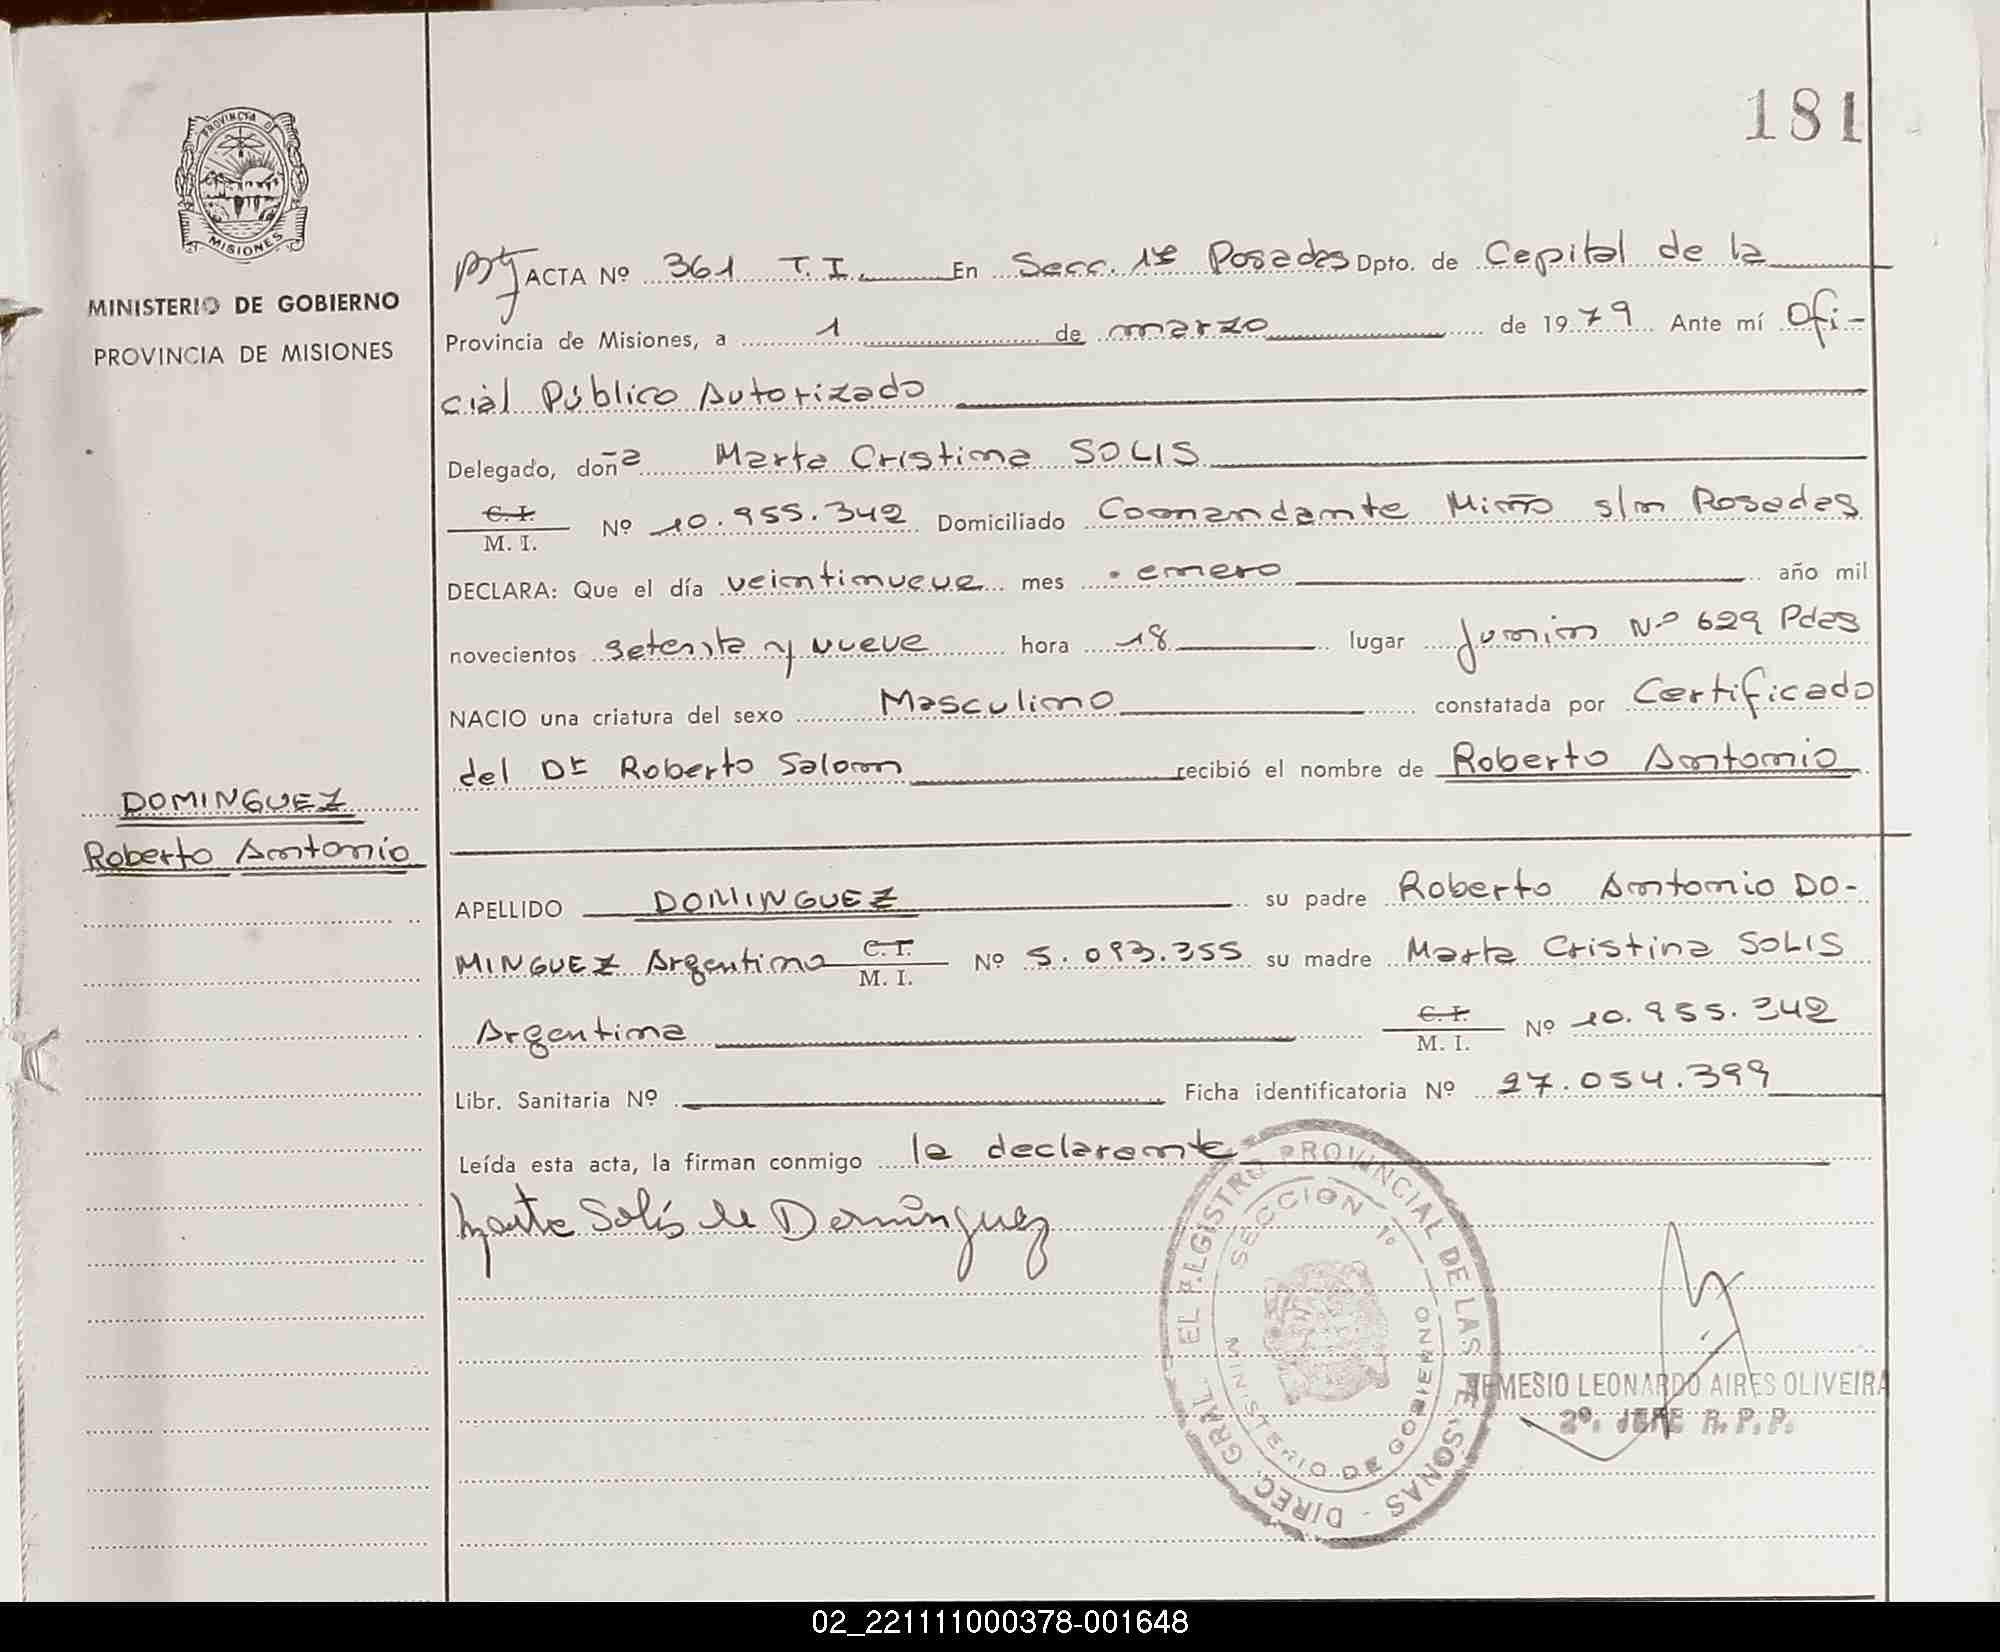 181
PROVINCIA DE
MISIONES
MINISTERIO DE GOBIERNO
PROVINCIA DE MISIONES
DOMINGUEZ
Roberto Antonio
ACTA Nº 361 T.I. En Secc. 1ra Posadas Dpto. de Capital de la
Provincia de Misiones, a 1 de marzo de 1979 Ante mí Ofi-
cial Público Autorizado
Delegado, doña Marta Cristina SOLIS
C.I. M. I. Nº 10.955.342 Domiciliado Comandante Miño s/n Posadas
DECLARA: Que el día veintinueve mes enero año mil
novecientos setenta y nueve hora 18 lugar Junin Nº 629 Pdas
NACIO una criatura del sexo Masculino constatada por Certificado
del Dr Roberto Salom recibió el nombre de Roberto Antonio
APELLIDO DOMINGUEZ su padre Roberto Antonio DO-
MINGUEZ Argentino C.I. M. I. Nº 5.093.355 su madre Marta Cristina SOLIS
Argentina C.I. M. I. Nº 10.955.342
Libr. Sanitaria Nº Ficha identificatoria Nº 27.054.399
Leída esta acta, la firman conmigo la declarante
Marta Solís de Domínguez
DIREC GRAL EL REGISTRO PROVINCIAL DE LAS PERSONAS -
SECCION 1º
MINISTERIO DE GOBIERNO
NEMESIO LEONARDO AIRES OLIVEIRA
2º. JEFE R.P.P.
02_221111000378-001648